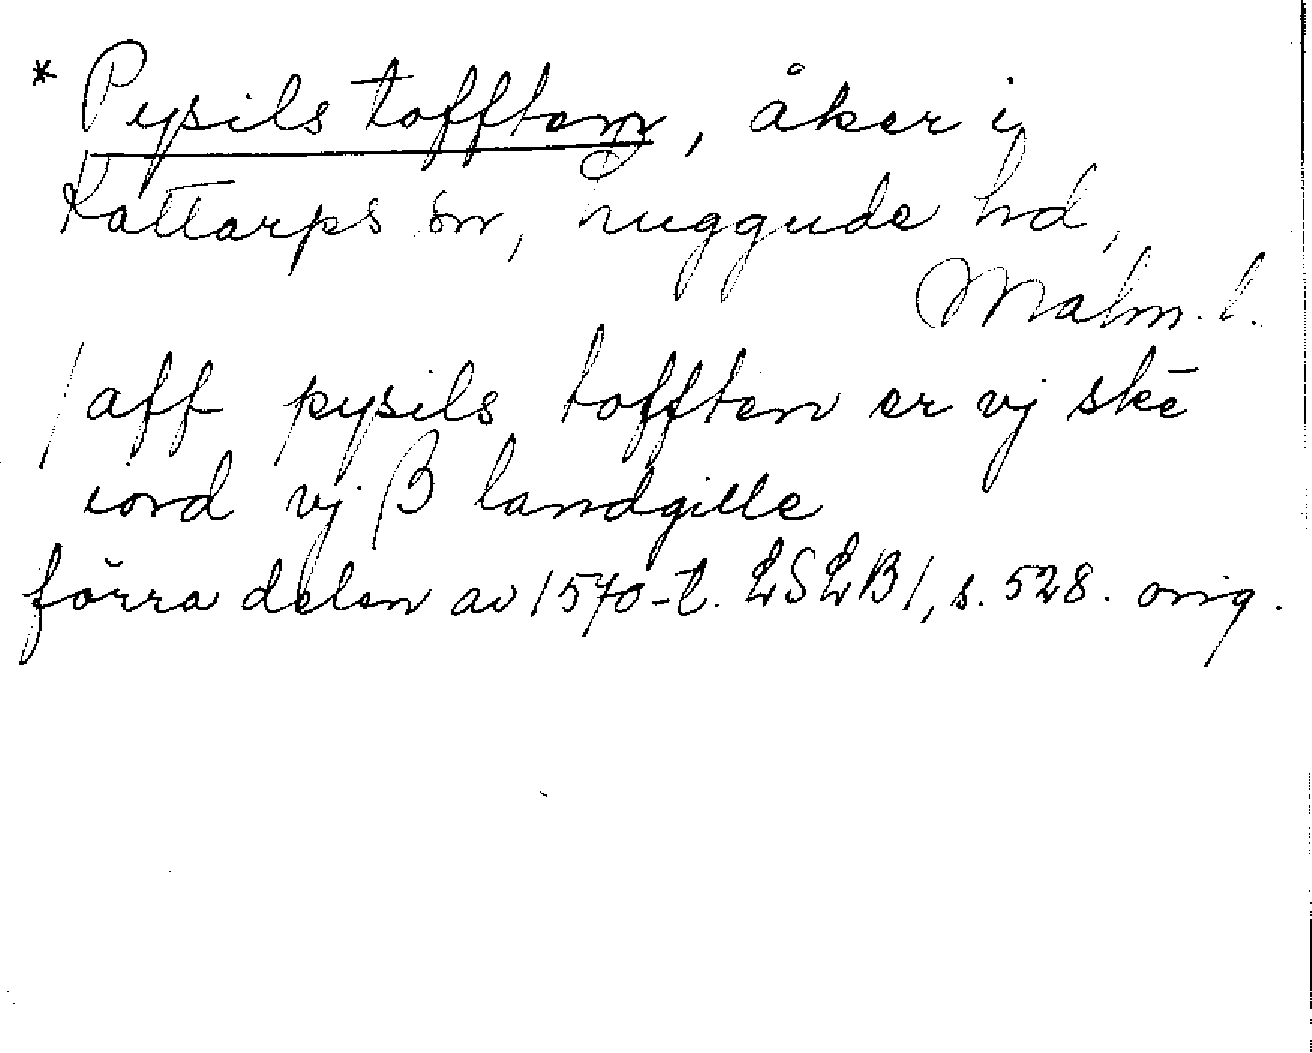 * Pysils tofften, åker i
Kattarps sn, Luggude hd,
Malm. l.
/ aff pysils tofften er vj ske
iord vj β landgille
förra delen av 1570-t. LSLB 1, s. 528. orig.